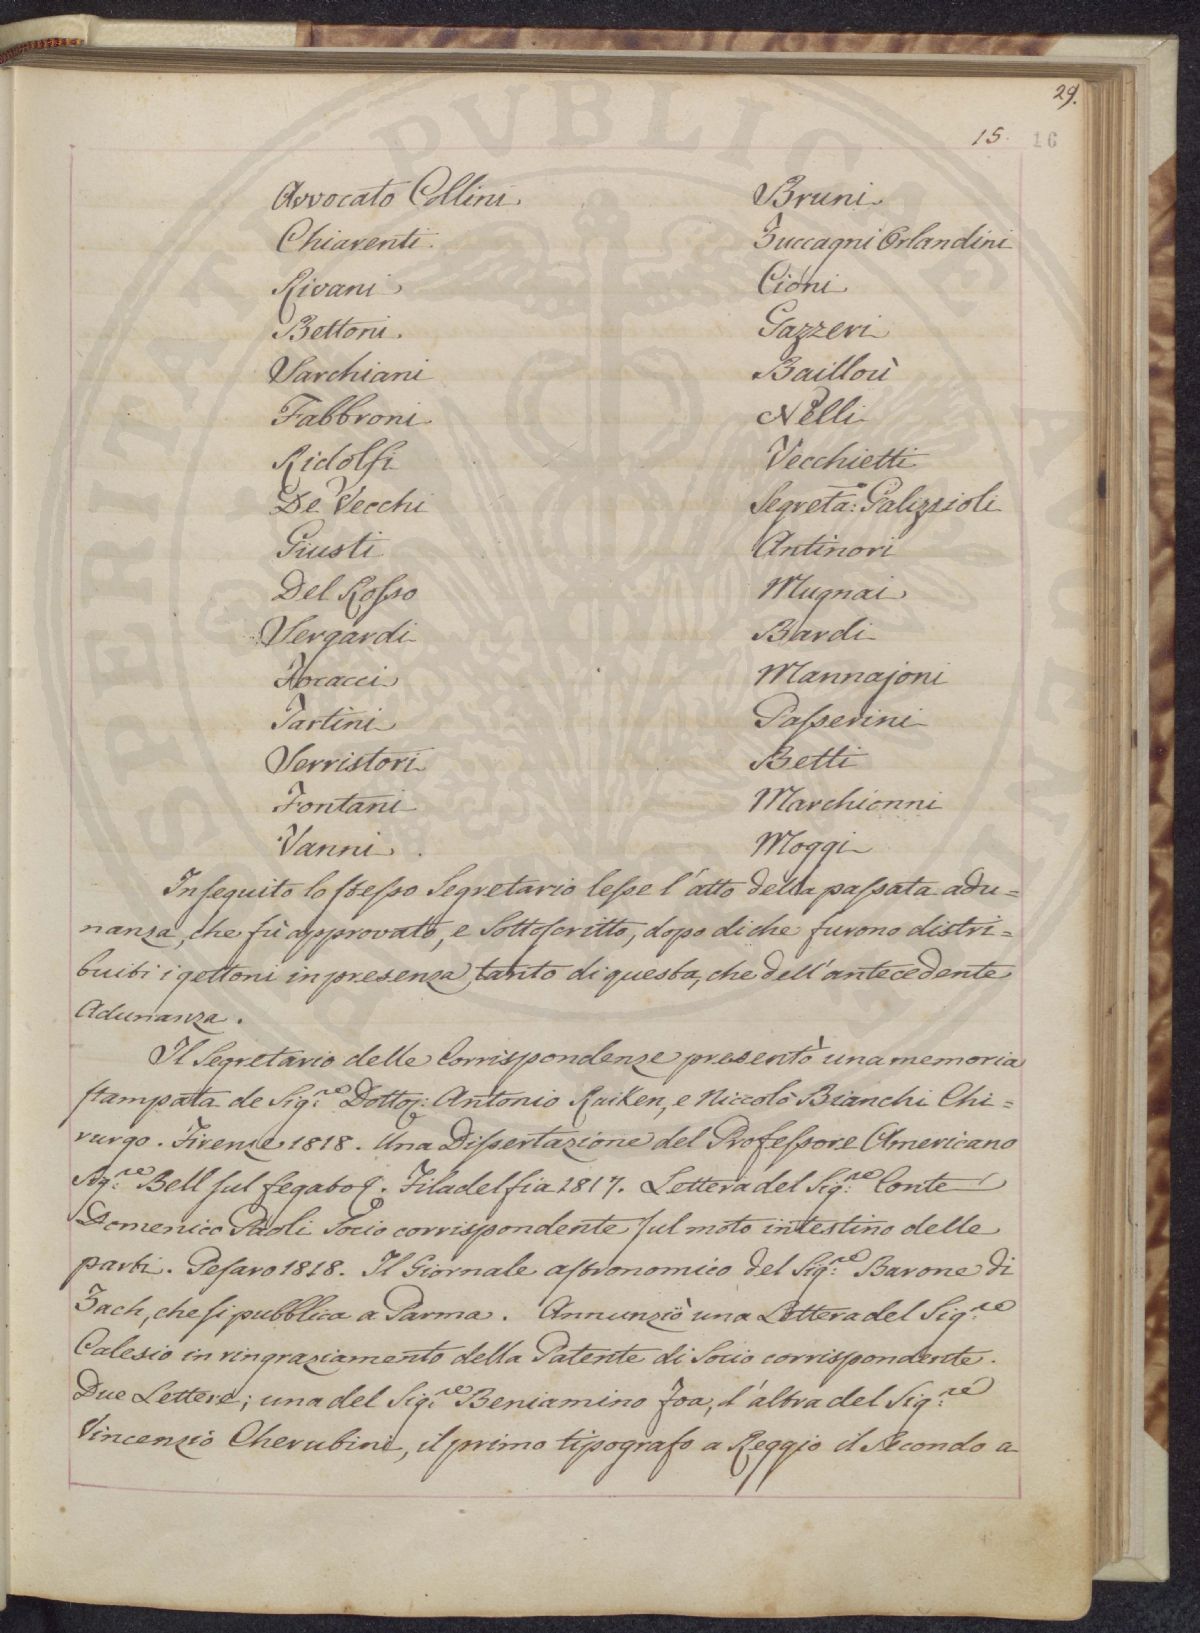 29.
15. 16
Avvocato Collini
Chiarenti
Rivani
Bettoni.
Sarchiani
Fabbroni
Ridolfi
De Vecchi
Giusti
Del Rosso
Sergardi
Focacci
Tartini
Serristori
Fontani
Vanni
Bruni
Zuccagni Orlandini
Cioni
Gazzeri
Bailloù
Nelli
Vecchietti
Segreta:º Galizzioli
Antinori
Mugnai
Bardi
Mannajoni
Passerini
Betti
Marchionni
Moggi
In seguito lo stesso Segretario lesse l'atto della passata adu=
nanza, che fù approvato, e Sottoscritto, dopo di che furono distri=
buiti i gettoni in presenza tanto di questa, che dell'antecedente
Adunanza.
Il Segretario delle Corrispondenze presentò una memoria
stampata de Sig:re Dottor: Antonio Raiken, e Niccolò Bianchi Chi=
rurgo. Firenze 1818. Una Dissertazione del Professore Americano
Sig:re Bell sul fegato. Filadelfia 1817. Lettera del Sig:re Conte
Domenico Paoli Socio corrispondente sul moto intestino delle
parti. Pesaro 1818. Il Giornale astronomico del Sig:re Barone di
Zach, che si pubblica a Parma. Annunziò una Lettera del Sig:re
Calesio in ringraziamento della Patente di Socio corrispondente.
Due Lettere; una del Sig:re Beniamino Foa, l'altra del Sig:re
Vincenzio Cherubini, il primo tipografo a Reggio il secondo a
PVBLICAE